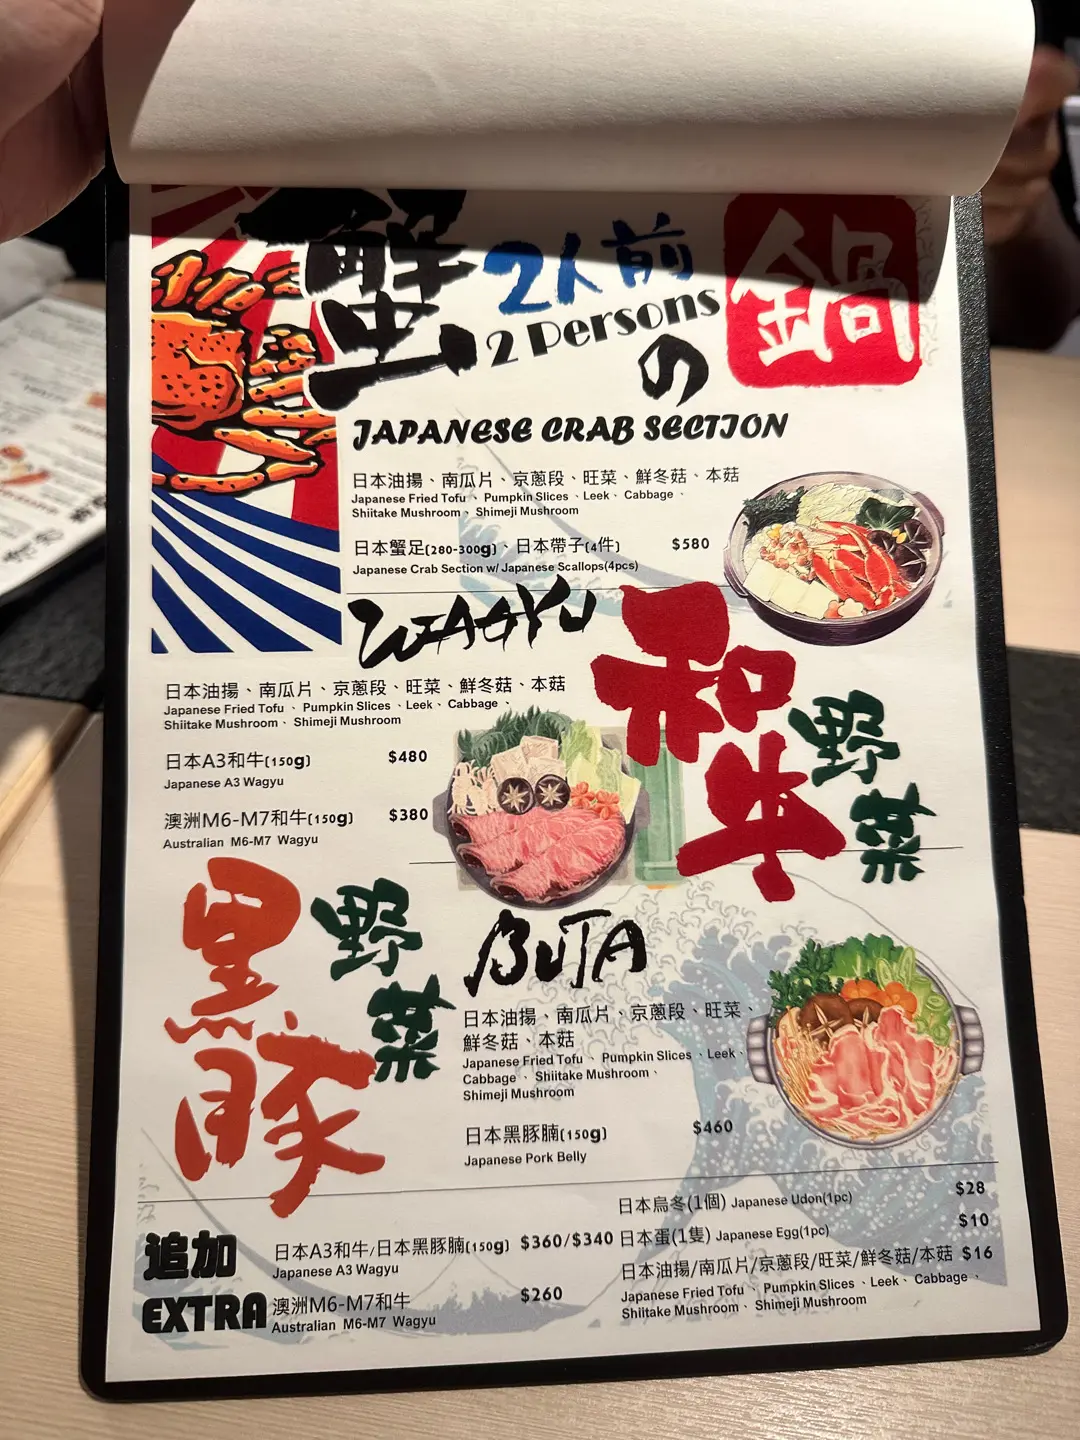 蟹 2人前 の 鍋
2 Persons
JAPANESE CRAB SECTION
日本油揚、南瓜片、京蔥段、旺菜、鮮冬菇、本菇
Japanese Fried Tofu 、 Pumpkin Slices 、Leek、 Cabbage 、
Shiitake Mushroom、 Shimeji Mushroom
日本蟹足(280-300g)、日本帶子(4件) $580
Japanese Crab Section w/ Japanese Scallops(4pcs)
WAGYU
和牛
野菜
日本油揚、南瓜片、京蔥段、旺菜、鮮冬菇、本菇
Japanese Fried Tofu 、 Pumpkin Slices 、Leek、 Cabbage 、
Shiitake Mushroom、 Shimeji Mushroom
日本A3和牛(150g) $480
Japanese A3 Wagyu
澳洲M6-M7和牛(150g) $380
Australian M6-M7 Wagyu
黑豚
野菜
BUTA
日本油揚、南瓜片、京蔥段、旺菜、
鮮冬菇、本菇
Japanese Fried Tofu 、 Pumpkin Slices 、Leek、
Cabbage 、 Shiitake Mushroom、
Shimeji Mushroom
日本黑豚腩(150g) $460
Japanese Pork Belly
追加
EXTRA
日本A3和牛/日本黑豚腩(150g) $360/$340
Japanese A3 Wagyu
澳洲M6-M7和牛 $260
Australian M6-M7 Wagyu
日本烏冬(1個) Japanese Udon(1pc) $28
日本蛋(1隻) Japanese Egg(1pc) $10
日本油揚/南瓜片/京蔥段/旺菜/鮮冬菇/本菇 $16
Japanese Fried Tofu 、 Pumpkin Slices 、Leek、 Cabbage 、
Shiitake Mushroom、 Shimeji Mushroom